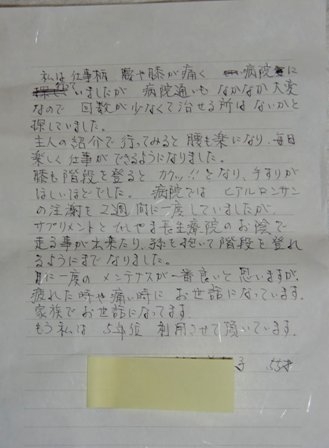 私は仕事柄 腰や膝が痛く 病院に
いましたが 病院通いも なかなか大変
なので 回数が少なくて治せる所はないかと
探していました。
主人の紹介で 行ってみると 腰も楽になり、毎日
楽しく 仕事ができるようになりました。
膝も階段を登ると カクッ となり、手すりが
ほしいほどでした。 病院では ヒアルロンサン
の注謝を2週間に一度していましたが、
サプリメントと 長生療院のお陰で
走る事が出来たり、孫を抱いて階段を登れ
るようにまでなりました。
月に一度の メンテナスが一番良いと思いますが、
疲れた時や痛い時に お世話になっています。
家族でお世話になってます。
もう私は 5年位 利用させて頂いています。
子 55才